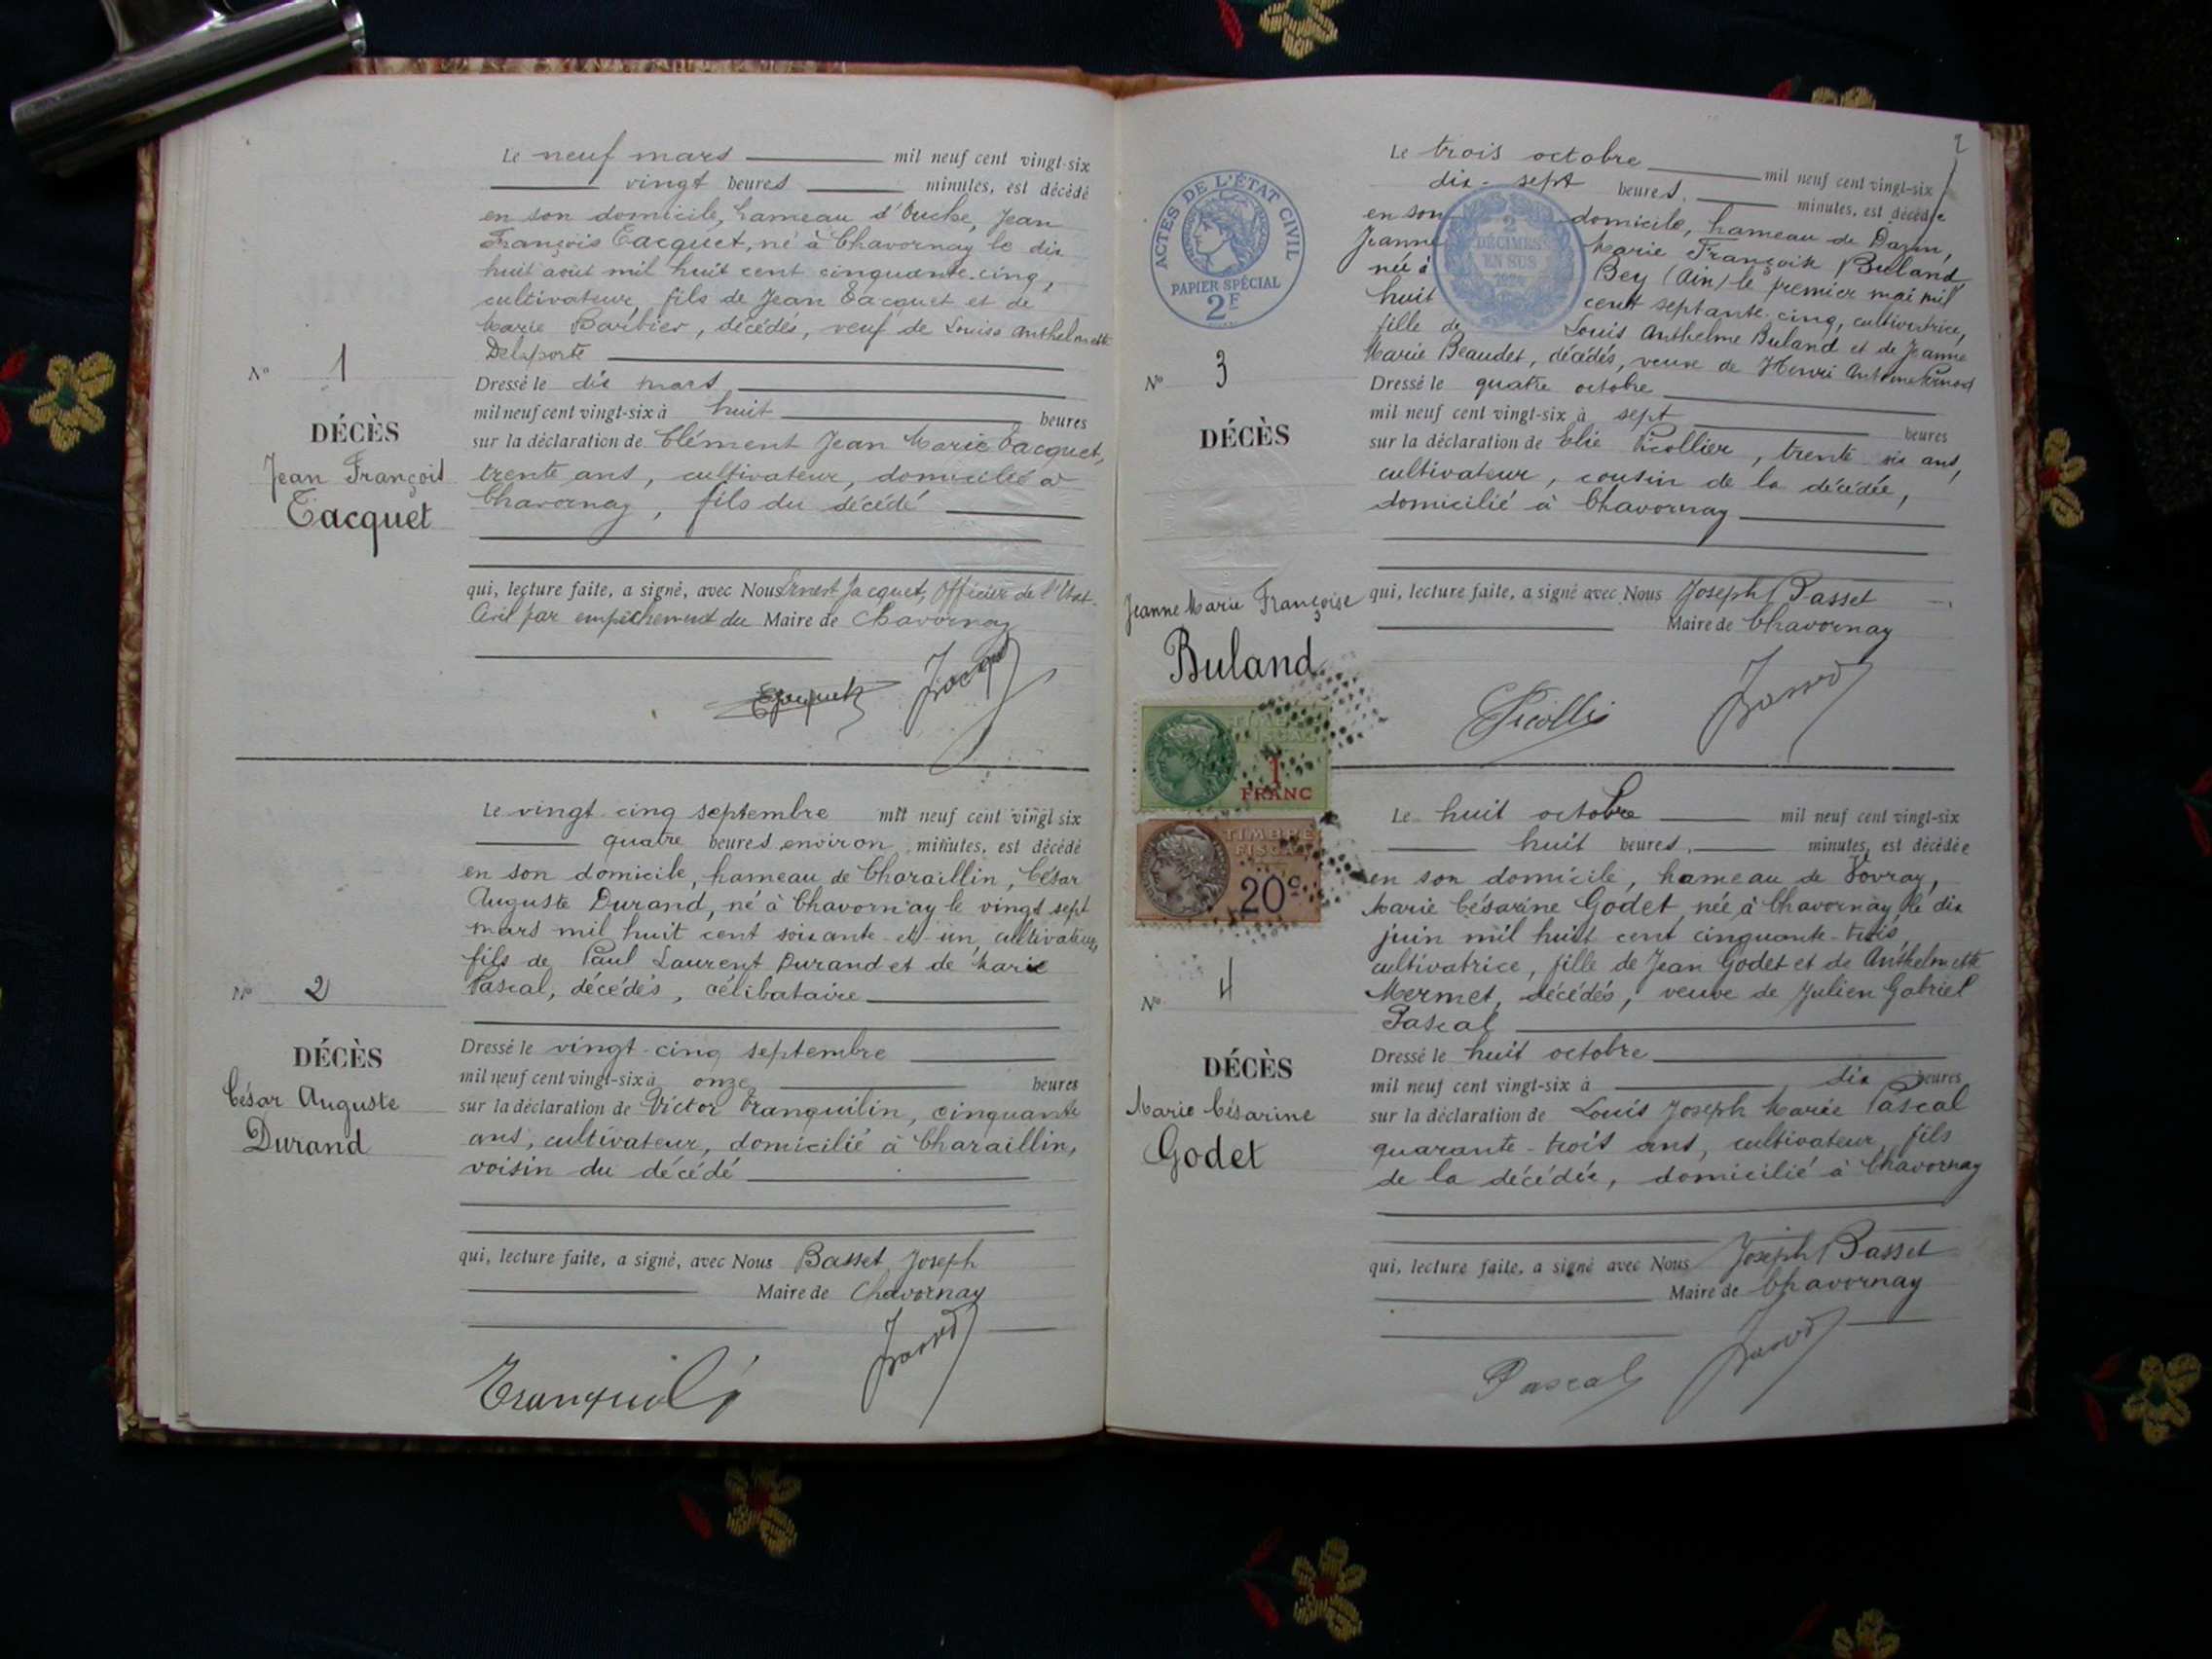 Le neuf mars mil neuf cent vingt-six
vingt heures minutes, est décédé
en son domicile, hameau d'Ouche, Jean
François Tacquet, né à Chavornay le dix
huit août mil huit cent cinquante-cinq,
cultivateur, fils de Jean Tacquet et de
Marie Barbier, décédés, veuf de Louise Anthelmette
Delaporte
N° 1
DÉCÈS
Jean François
Tacquet
Dressé le dix mars
mil neuf cent vingt-six à huit heures
sur la déclaration de Clément Jean Marie Tacquet,
trente ans, cultivateur, domicilié à
Chavornay, fils du décédé
qui, lecture faite, a signé, avec Nous Ernest Jacquet, Officier de l'Etat-
Civil par empêchement du Maire de Chavornay
Le vingt-cinq septembre mil neuf cent vingt-six
quatre heures environ minutes, est décédé
en son domicile, hameau de Charaillin, César
Auguste Durand, né à Chavornay le vingt sept
mars mil huit cent soixante et un, cultivateur,
fils de Paul Laurent Durand et de Marie
Pascal, décédés, célibataire
N° 2
DÉCÈS
César Auguste
Durand
Dressé le vingt-cinq septembre
mil neuf cent vingt-six à onze heures
sur la déclaration de Victor Tranquilin, cinquante
ans, cultivateur, domicilié à Charaillin,
voisin du décédé
qui, lecture faite, a signé, avec Nous Basset Joseph
Maire de Chavornay
2
ACTES DE L'ÉTAT CIVIL
PAPIER SPÉCIAL
2F
2
DÉCIMES
EN SUS
Le trois octobre mil neuf cent vingt-six
dix-sept heures, minutes, est décédée
en son domicile, hameau de Dazin,
Jeanne Marie Françoise Buland
née à Bey (Ain) le premier mai mil
huit cent septante-cinq, cultivatrice,
fille de Louis Anthelme Buland et de Jeanne
Marie Beaudet, décédés, veuve de Henri Antoine
N° 3
DÉCÈS
Jeanne Marie Françoise
Buland
Dressé le quatre octobre
mil neuf cent vingt-six à sept heures
sur la déclaration de Elie Picollier, trente six ans,
cultivateur, cousin de la décédée,
domicilié à Chavornay
qui, lecture faite, a signé avec Nous Joseph Basset
Maire de Chavornay
TIMBRE
FISCAL
1
FRANC
TIMBRE
FISCAL
20c
Le huit octobre mil neuf cent vingt-six
huit heures, minutes, est décédée
en son domicile, hameau de Vovray,
Marie Césarine Godet, née à Chavornay, le dix
juin mil huit cent cinquante-trois,
cultivatrice, fille de Jean Godet et de Anthelmette
Mermet, décédés, veuve de Julien Gabriel
Pascal
N° 4
DÉCÈS
Marie Césarine
Godet
Dressé le huit octobre
mil neuf cent vingt-six à dix heures
sur la déclaration de Louis Joseph Marie Pascal
quarante-trois ans, cultivateur, fils
de la décédée, domicilié à Chavornay
qui, lecture faite, a signé avec Nous Joseph Basset
Maire de Chavornay
Pascal